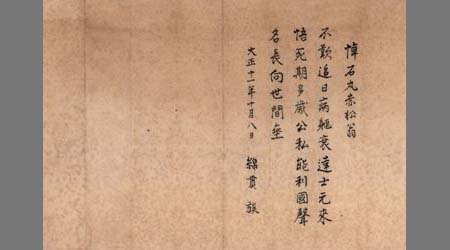 悼石丸赤松翁
不歎追日病軀衰達士元来
悟死期多歳公私能利國聲
名長向世間垂
大正十一年十月八日 綿貫